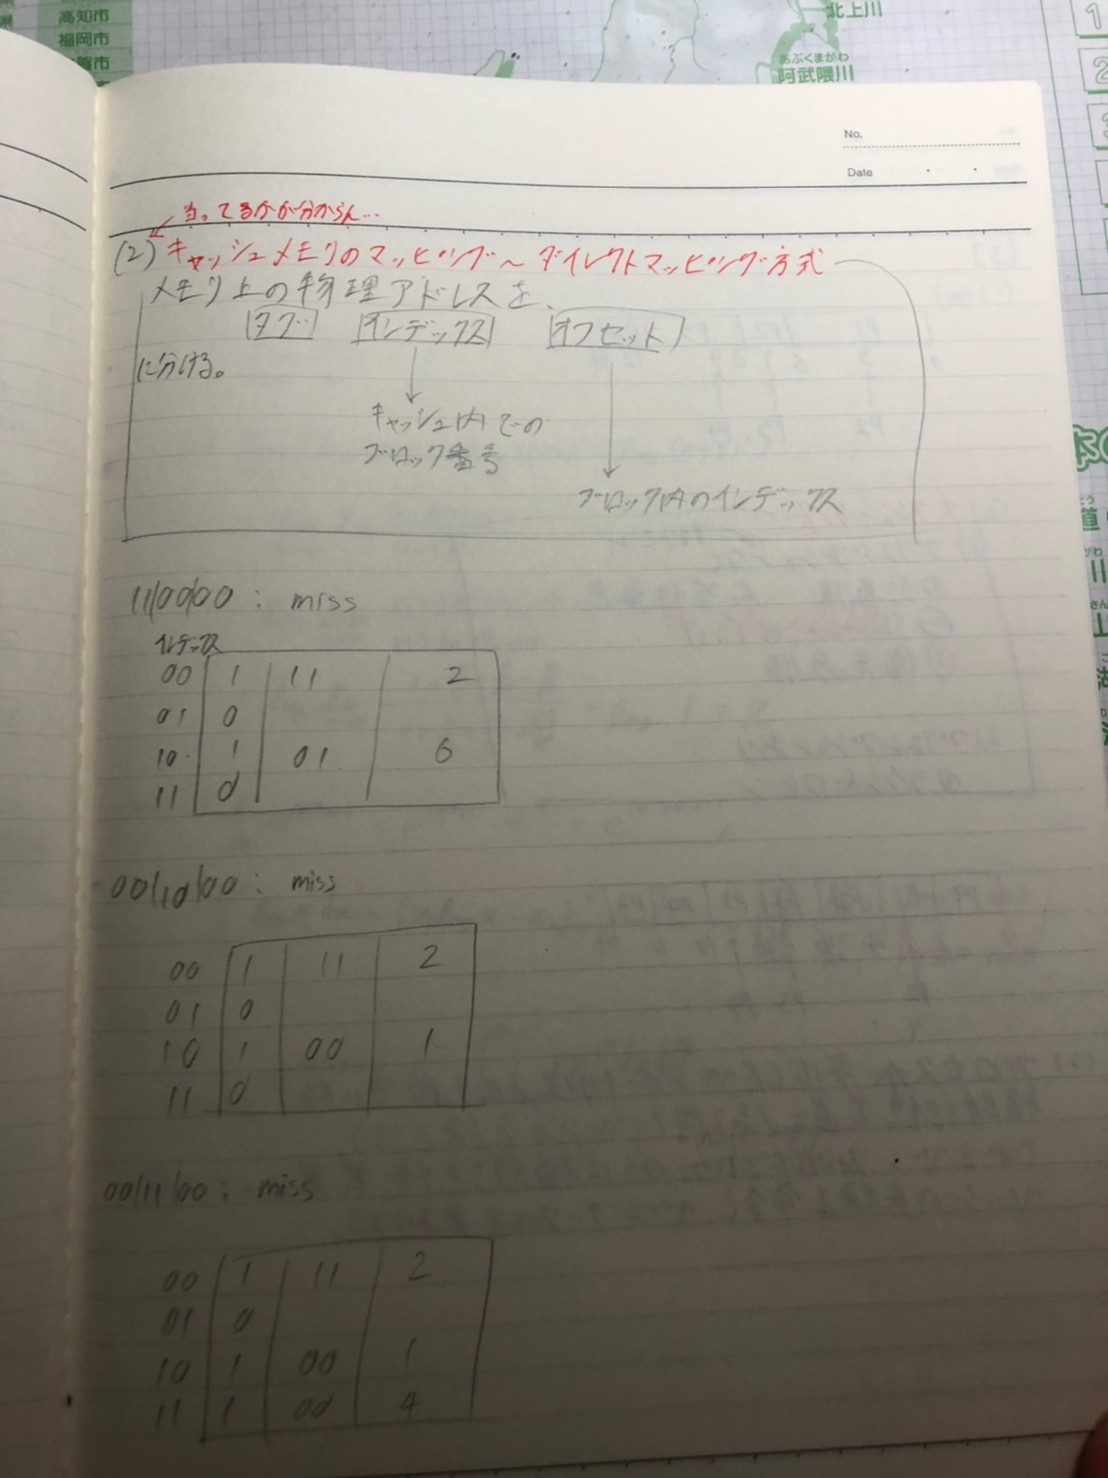 高知市
福岡市
北上川
あぶくまがわ
阿武隈川
No.
Date
当ってるかが分からん…
(2) キャッシュメモリのマッピング〜ダイレクトマッピング方式
メモリ上の物理アドレスを、
タグ インデックス オフセット
に分ける。
キャッシュ内での
ブロック番号
ブロック内のインデックス
11/00/00 : miss
インデックス
00 1 11 2
01 0
10 1 01 6
11 0
00/10/00 : miss
00 1 11 2
01 0
10 1 00 1
11 0
00/11/00 : miss
00 1 11 2
01 0
10 1 00 1
11 1 00 4